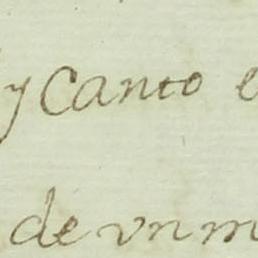 y Canto e
de vn m